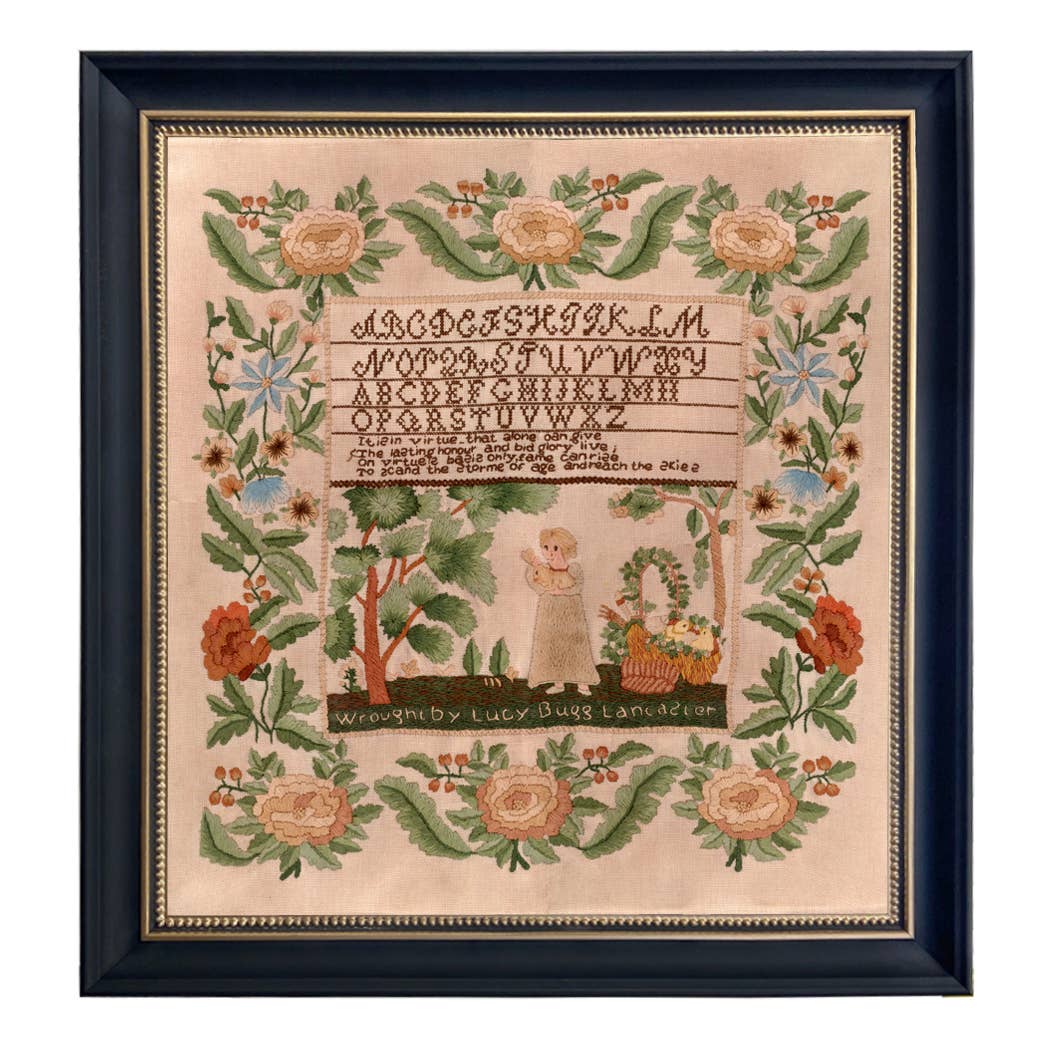 ABCDEFGHIJKLM
NOPQRSTUVWXY
ABCDEFGHIJKLMN
OPQRSTUVWXZ
It is in virtue that alone can give
The lasting honour and bid glory live;
On virtue's basis only fame can rise
To stand the storms of age and reach the skies
Wrought by Lucy Bugg Lancaster